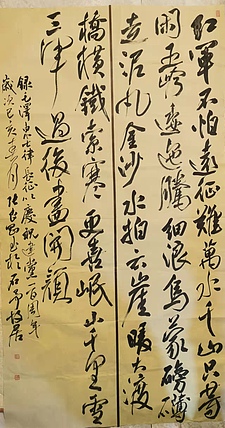 紅軍不怕遠征難萬水千山只等
閑五嶺逶迤騰細浪烏蒙磅礴
走泥丸金沙水拍云崖暖大渡
橋橫鐵索寒更喜岷山千里雪
三軍過後盡開顏
錄毛澤東七律長征以慶祝建黨一百周年
歲次 月 於石 居